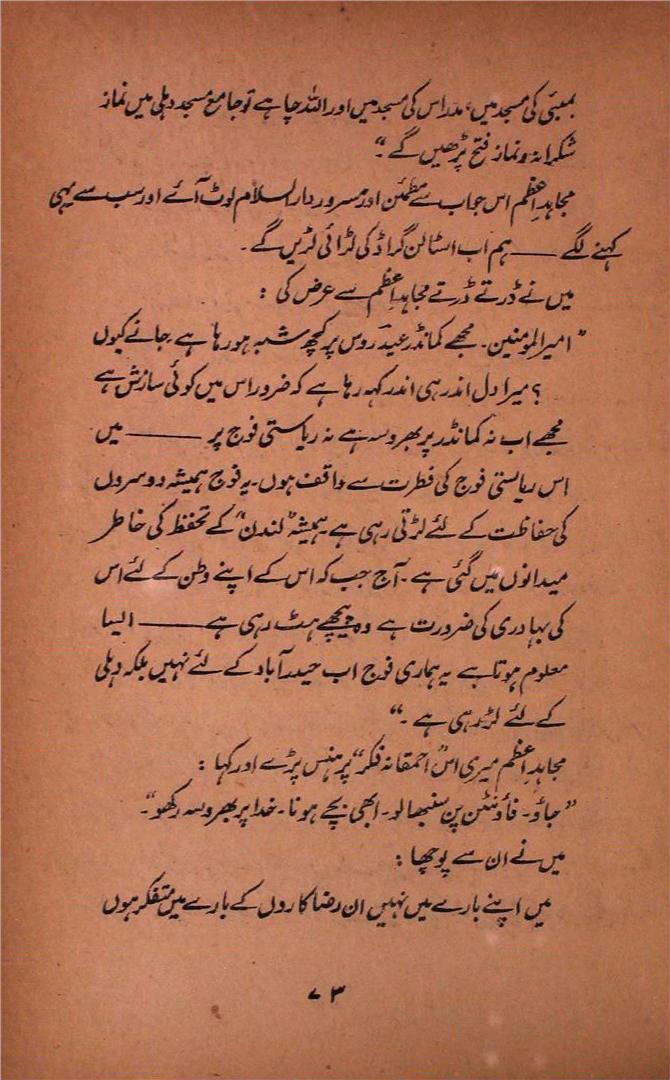 بمبئی کی مسجد میں، مدراس کی مسجد میں اور اللہ چاہے تو جامع مسجد دہلی میں نماز
شکرانہ و نماز فتح پڑھیں گے"۔
مجاہدِ اعظم اس جواب سے مطمئن اور مسرور دارالسلام لوٹ آئے اور سب سے یہی
کہنے لگے —— ہم اب اسٹالن گراڈ کی لڑائی لڑیں گے۔
میں نے ڈرتے ڈرتے مجاہدِ اعظم سے عرض کی :
"امیر المومنین۔ مجھے کمانڈر عیدروس پر کچھ شبہ ہو رہا ہے جانے کیوں
؟ میرا دل اندر ہی اندر کہہ رہا ہے کہ ضرور اس میں کوئی سازش ہے
مجھے اب نہ کمانڈر پر بھروسہ ہے نہ ریاستی فوج پر —— میں
اس ریاستی فوج کی فطرت سے واقف ہوں۔ یہ فوج ہمیشہ دوسروں
کی حفاظت کے لئے لڑتی رہی ہے ہمیشہ "لندن" کے تحفظ کی خاطر
میدانوں میں گئی ہے۔ آج جب کہ اس کے اپنے وطن کے لئے اس
کی بہادری کی ضرورت ہے وہ پیچھے ہٹ رہی ہے —— ایسا
معلوم ہوتا ہے یہ ہماری فوج اب حیدرآباد کے لئے نہیں بلکہ دہلی
کے لئے لڑ رہی ہے۔"
مجاہدِ اعظم میری اس "احمقانہ فکر" پر ہنس پڑے اور کہا :
"جاؤ۔ فاؤنٹن پن سنبھالو۔ ابھی بچے ہو نا۔ خدا پر بھروسہ رکھو"۔
میں نے ان سے پوچھا :
میں اپنے بارے میں نہیں ان رضاکاروں کے بارے میں متفکر ہوں
۷۳